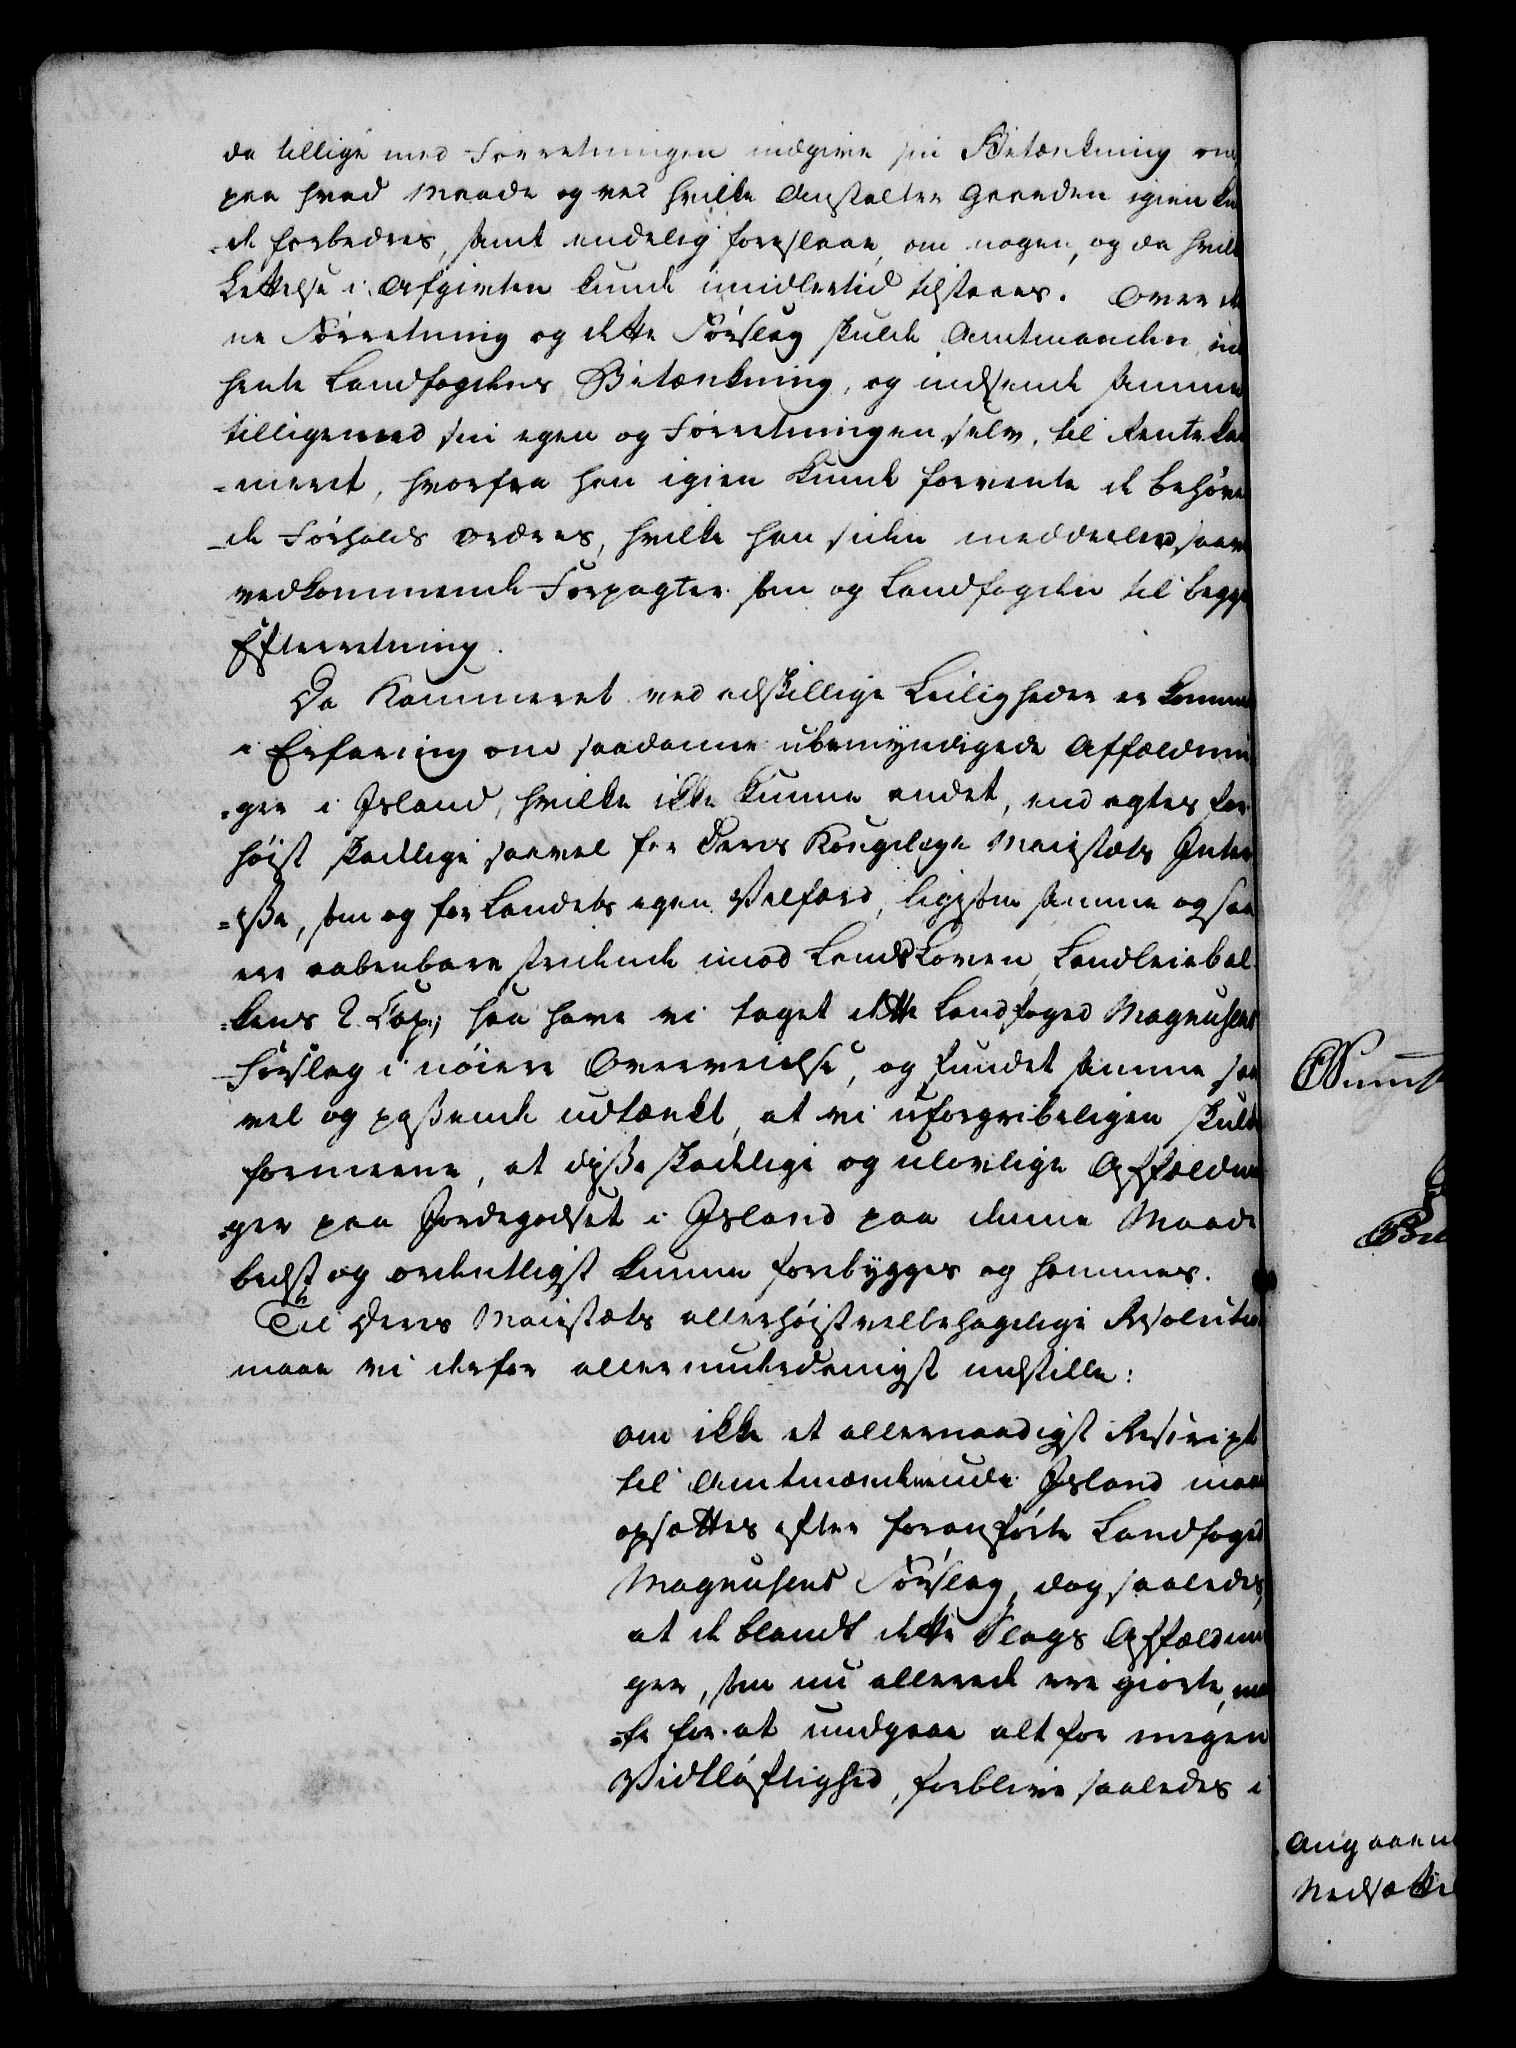 da tillige med Forretningen indgive sin Betænkning om,
paa hvad Maade og ved hvilke Anstalter Gaarden igien kun
-de forbedres, samt endelig foreslaae, om nogen, og da hvilk
Lettelse i Afgivten kunde imidlertid tilstaaes. Over den
ne Forretning og dette Forslag skulde Amtmanden ind
hente Landfogdens Betænkning, og indsende samme
tilligemed sin egen og Forretningen selv, til Renteka
-meret, hvorfra han igien kunde forvente de behøve
-de Forholds Ordres, hvilke han siden meddeeler saav
vedkommende Forpagter som og Landfogden til begge
Efterretning.
Da Kammeret ved adskillige Leiligheder er komme
i Erfaring om saadanne ubemyndigede Affældnin
-ger i Island, hvilke ikke kunne andet, end agtes for
høist skadlige saavel for Deres Kongelige Maiestæts Inter
-esse, som og for Landets egen Velfærd, ligesom samme ogsaa
ere aabenbare stridende imod Lands Loven Landleiebal
-kens 2 Cap; saa have vi taget dette Landfoged Magnusens
Forslag i nøiere Overveielse, og fundet samme saa
vel og passende udtænkt, at vi uforgribeligen skulde
formeene, at disse skadelige og ulovlige Affældnin
-ger paa Jordegodset i Island paa denne Maade
bedst og ordentligst kunne forebygges og hemmes.
Til Deres Maiestæts allerhøistvelbehagelige Resolution
maae vi derfor allerunderdanigst indstille:
om ikke et allernaadigst Rescript
til Amtmændene udi Island maae
opsættes efter foranførte Landfoged
Magnusens Forslag, dog saaledes,
at de blandt dette Slags Affældnin
ger, som nu allerede ere giorte, maa
-e for at undgaae alt for megen
Vidtløftighed, forblive saaledes i
Angaaen
Nedsætte